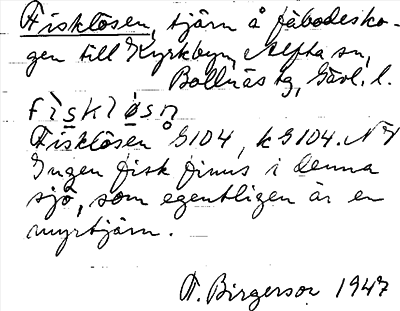 Fisklösen, tjärn å fäbodesko-
gen till Kyrkbyn, Alfta sn,
Bollnäs tg, Gävl. l.
fiskløsn
Fisklösen Å G104, kG104. N4
Ingen fisk finns i denna
sjö, som egentligen är en
myrtjärn.
F. Birgerson 1947